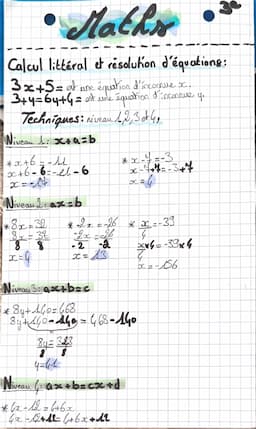 3e
Maths
Calcul littéral et résolution d'équations:
3x+5= est une équation d'inconnue x.
3+y=6y+4= est une équation d'inconnue y.
Techniques: niveau 1,2,3 et 4,
Niveau 1: x+a=b
* x+6=-11 * x-7=-3
x+6-6=-11-6 x-7+7=-3+7
x=-17 x=4
Niveau 2: ax=b
* 8x=32 * -2x=-26 * x/4=-39
8x/8=32/8 -2x/-2=-26/-2 x/4×4=-39×4
x=4 x=13 x=-156
Niveau 3: ax+b=c
* 8y+140=468
8y+140-140=468-140
8y/8=328/8
y=41
Niveau 4: ax+b=cx+d
* 4x-12=6+6x
4x-12+12=6+6x+12